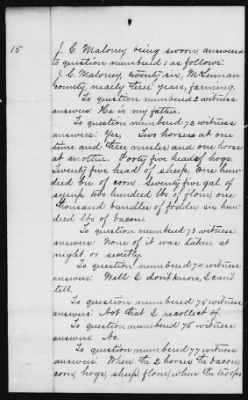 15
J. C. Maloney being sworn, answered
to question numbered 1 as follows:
J. C. Maloney, twenty six, McLennan
County, nearly three years, farming.
To question numbered 2 witness
answers: He is my father.
To question numbered 72 witness
answers: Yes, Two horses at one
time and three mules and one horse
at another. Forty five head of hogs
Twenty five head of sheep, one hun
dred bu of corn Twenty five gal of
syrup two hundred lbs of flour, one
thousand bundles of fodder, six hun
dred lbs of bacon
To question numbered 73 witness
answers: None of it was taken at
night, or secretly.
To question numbered 74 witness
answers: Well I don't know, I can't
tell.
To question numbered 75 witness
answers: Not that I recollect of.
To question numbered 76 witness
answers: No.
To question numbered 77 witness
answers: When the 2 horses the bacon,
corn, hogs, sheep flour, when the troops